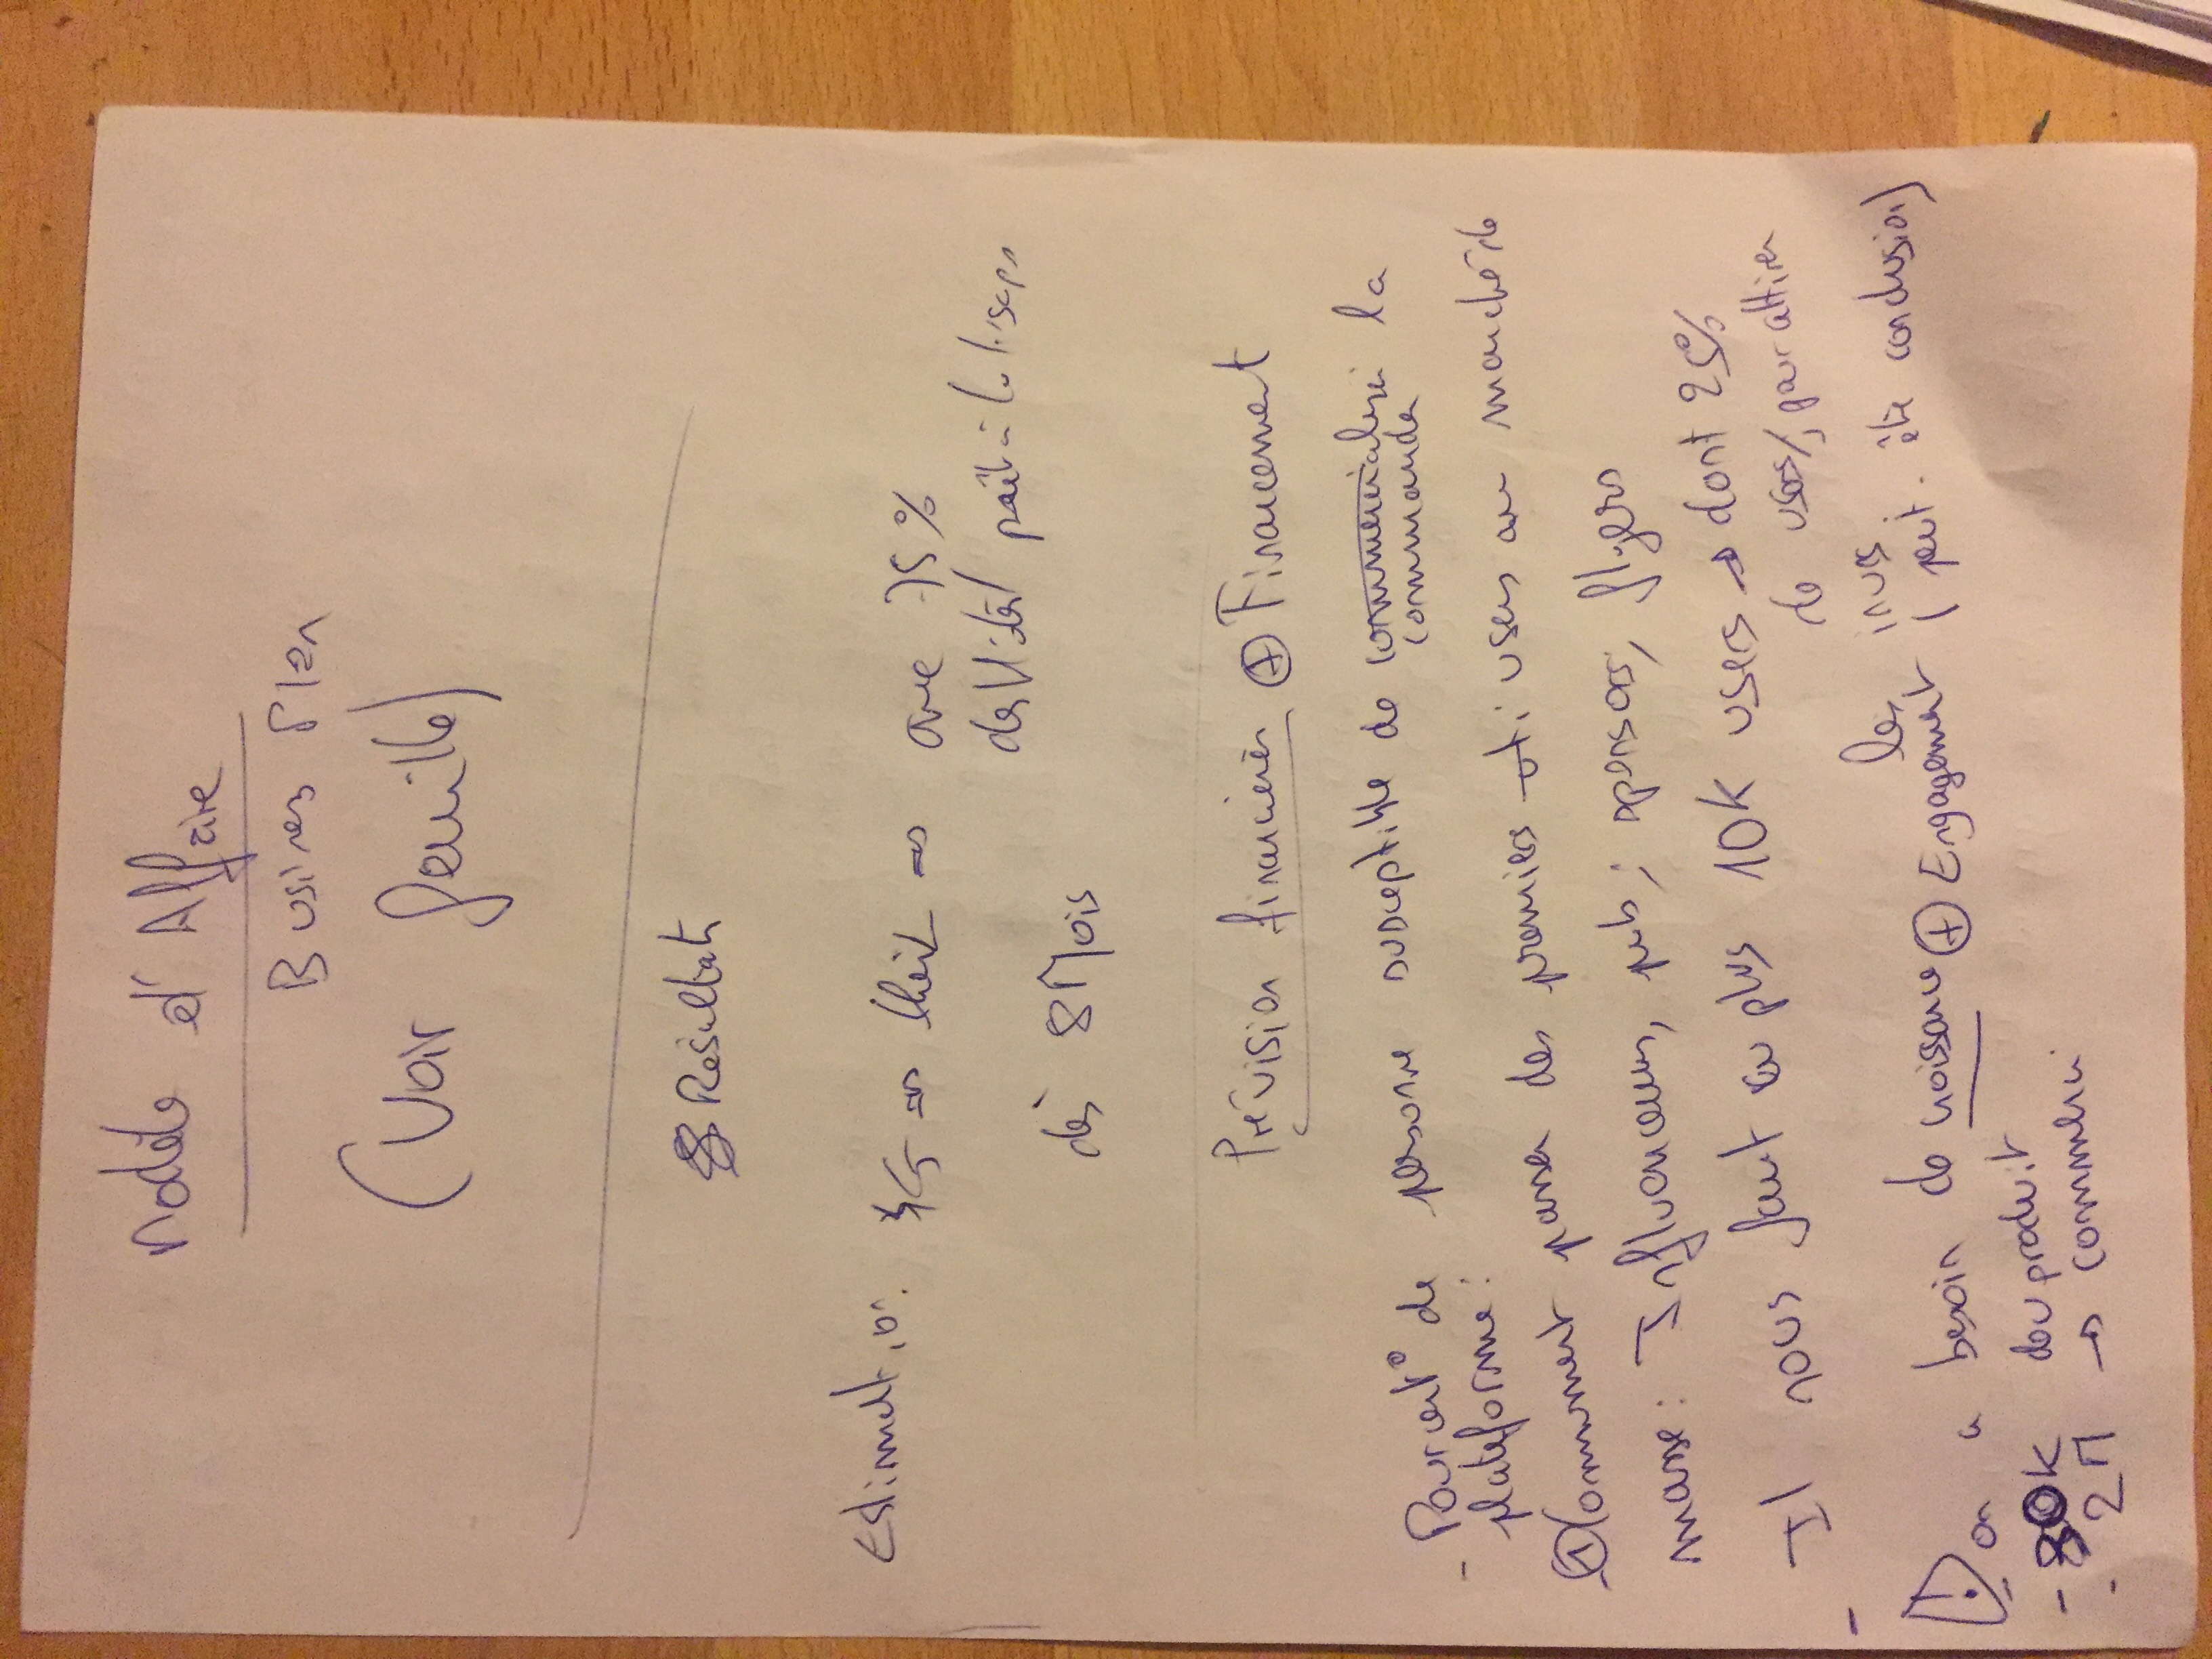 Modèle d'Affaire
Business Plan
(Voir feuille)
Résultats
Estimation:
avec 75%
prêt à
dès 8 Mois
Prévision financières + Financement
- Pourcent° de personne susceptible de commercialiser la
commander
plateforme:
- + Comment passer des premiers uti users au marché de
masse: Influenceurs, pub; sponsors; flyers
Il nous faut au plus 10K users → dont 25%
de users/, pour attirer
les invus.
on a besoin de croissance + Engagement (peut-être conclusion)
- 80K dev produit
- 2M → commerci